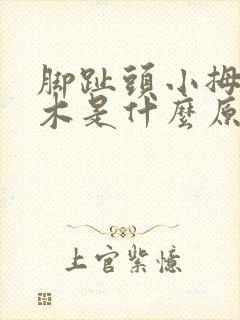 脚趾頭小拇
木是什麼原
上官紫憶